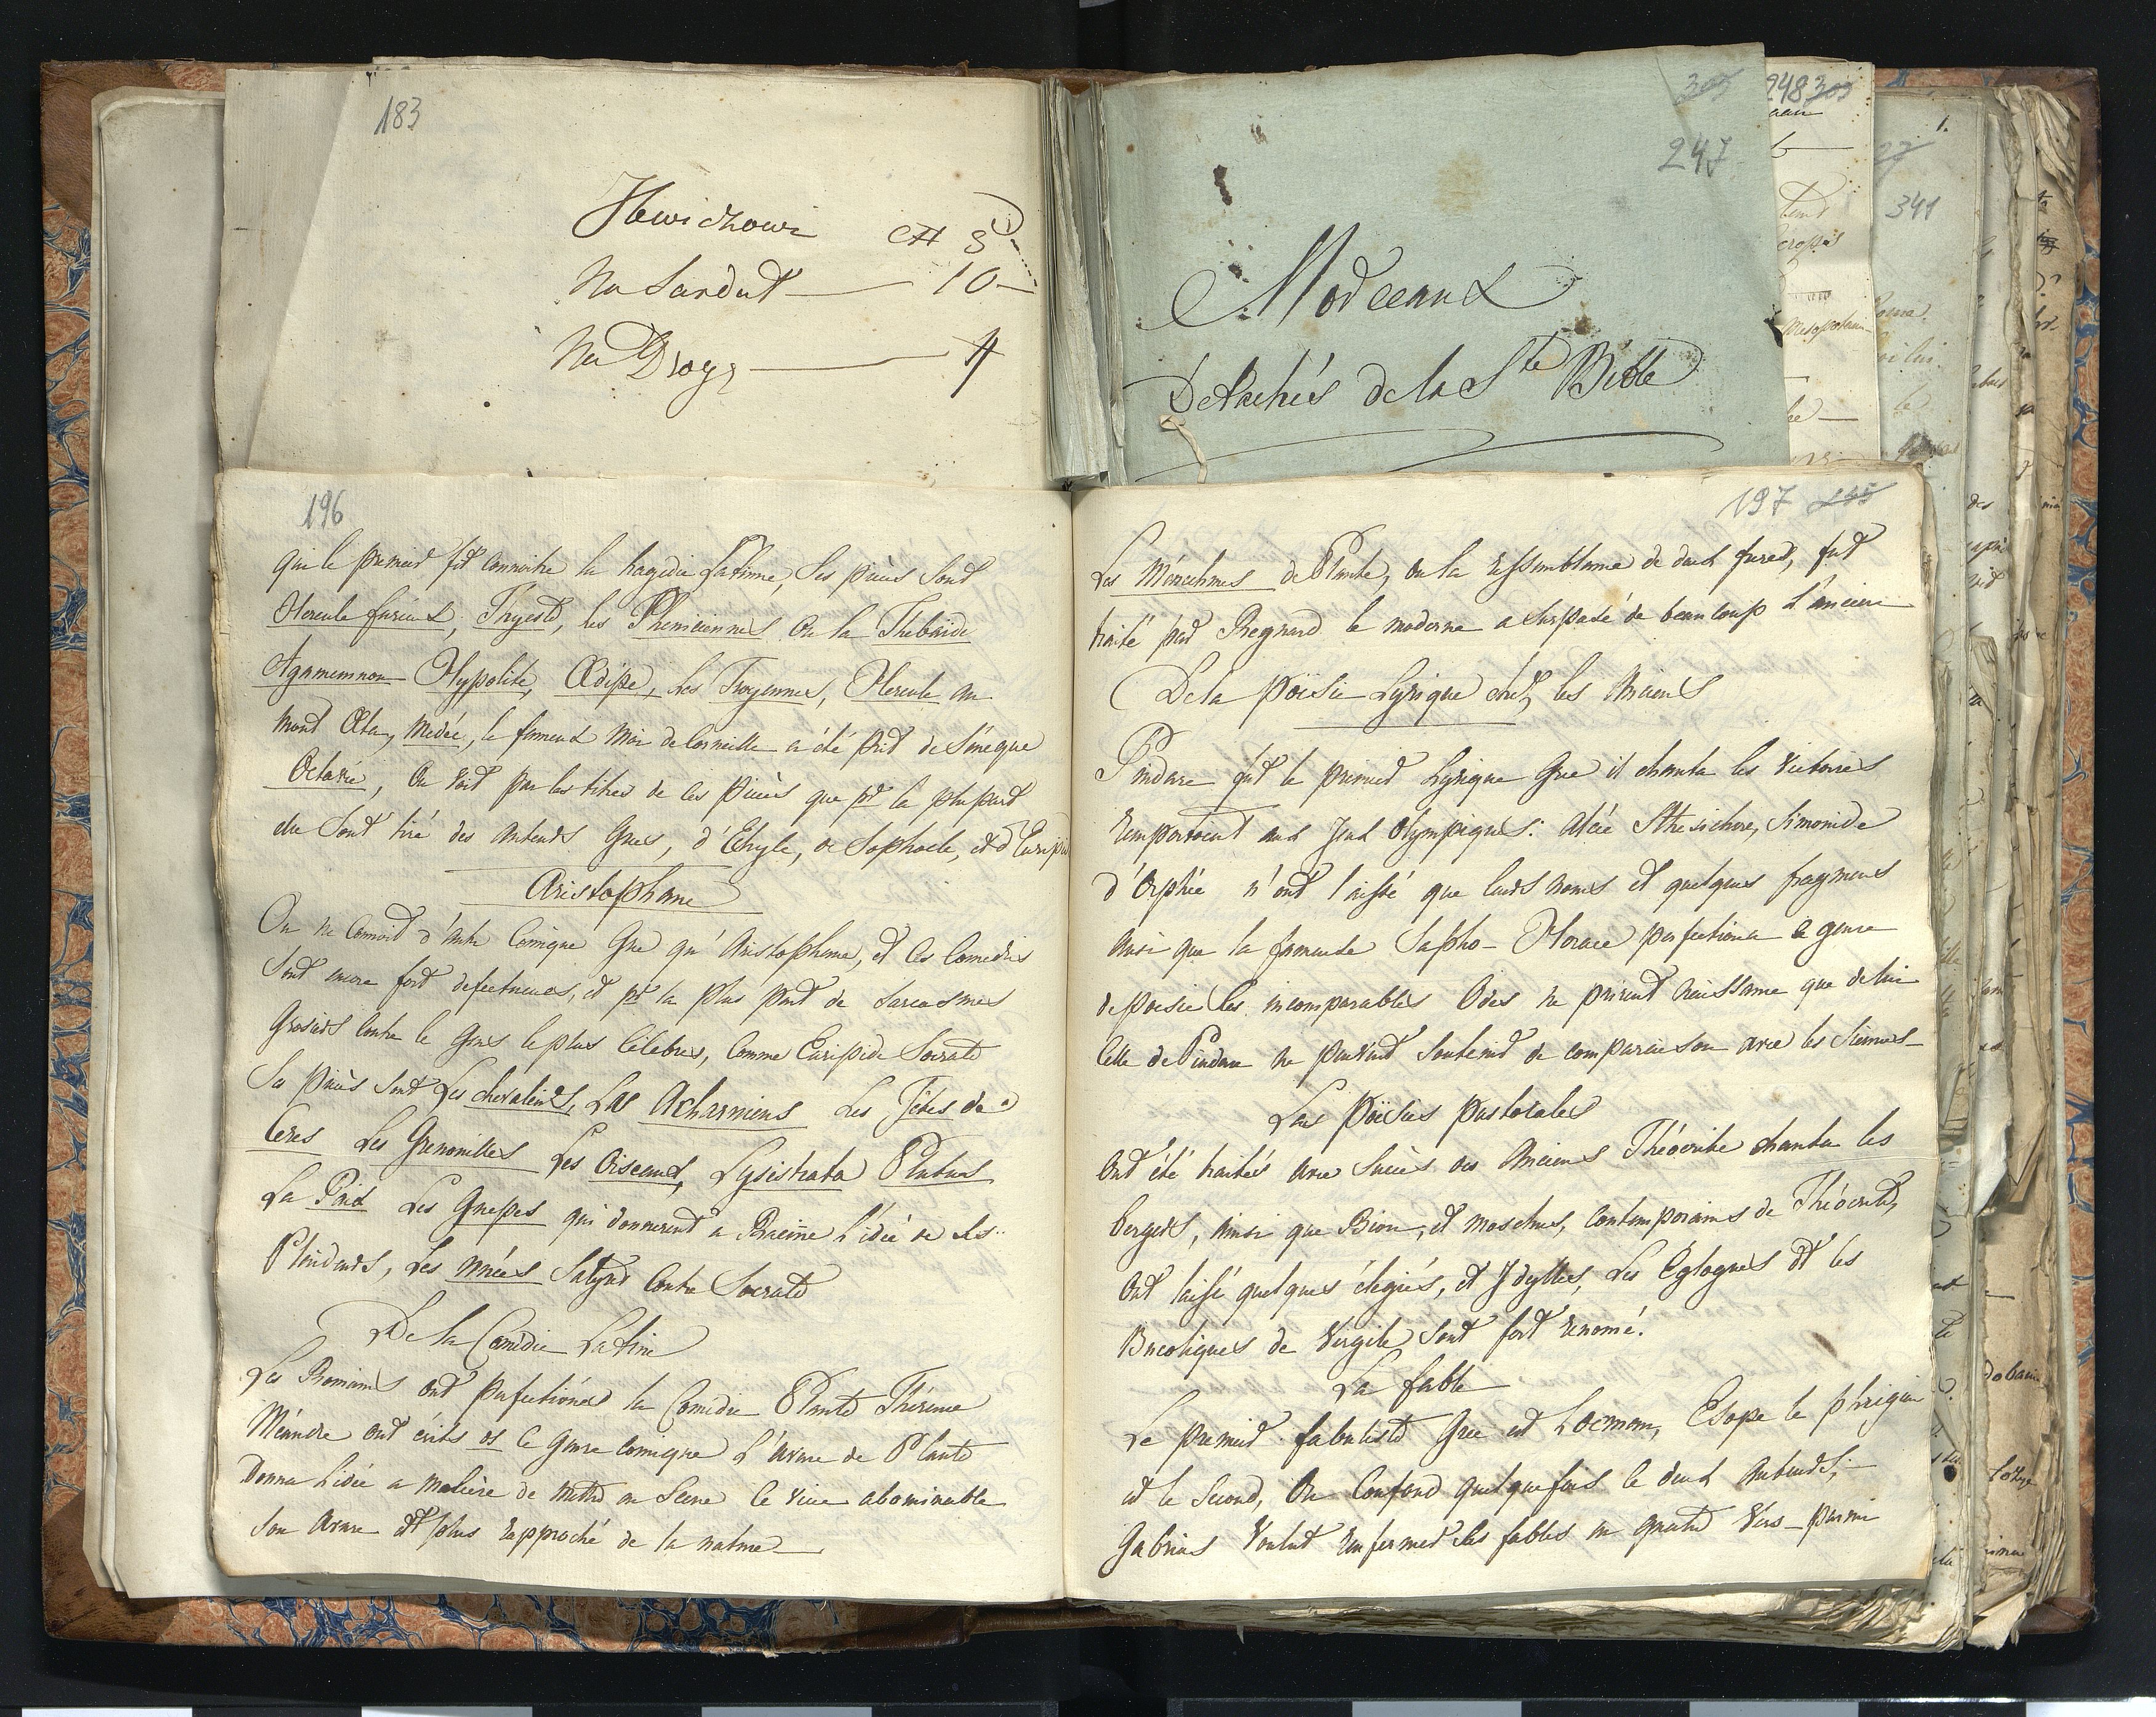 183
Hewichowi # 5
Na Sandut — 10 —
Na Drogę — 4
305
247
Morceaux
Detachés de la Ste Bible
248 305
Mesopotam
1.
341
196
qui le premier fit connoitre la tragedie Latinne, Ses pieces Sont
Hercule furieux, Thyeste, les Pheniciennes ou la Thebaïde
Agamemnon Hypolite, Œdipe, les Troyennes, Hercule au
mont Œta, Medée, le fameux Moi de Corneille a été prit de Séneque
Octavie, On voit par les titres de ces Pieces que pr la plupart
elle Sont tiré des Auteurs Grecs, d'Echyle, de Sophocle, et d'Euripi
Aristophane
On ne connoit d'autre Comique Grec qu'Aristophane, et ces Comedies
Sont encore fort defectueuses, et pr la plus part de Sarcasmes
Grosiers Contre le Gens le plus Célebres, Comme Euripide Socrate
Ses pièces Sont Les Chevaliers, Les Acharniens Les Fétes de
Ceres Les Grenouilles Les Oiseaux, Lysistrata Plutus
La Paix Les Guepes qui donnerent a Racine l'idée de Ses
Plaideurs, Les Nuées Satyre Contre Socrate
De la Comédie Latine
Les Romains ont perfectionées la Comédie Plaute Thérence
Méandre ont écrits ds le Genre comique L'Avare de Plaute
Donna l'idée a Moliere de mettre en Scene ce vice abominable
Son Avare est plus rapproché de la nature —
197
Les Ménechmes de Plaute, ou la ressemblance de deux freres, fut
traité par Regnard le moderne a Surpasé de beaucoup L'ancien
De la poësie Lyrique chez les Anciens
Pindare fut le premier Lyrique Grec il chanta les Victoires
remportoient aux Jeux Olympiques: Alcée Sthesichore, Simonide
d'Orphée n'ont laissé que leurs noms et quelques fragmens
Ainsi que la fameuse Sapho — Horace perfectiona ce genre
de poesie les incomparables Odes ne prirent naissance que de lui
Celle de Pindare ne peuvent Soutenir de comparaison avec les Siennes —
Les poësies pastorales
Ont été traités avec Succès des Anciens Théocrite chanta les
bergers, ainsi que Bion, et Moschus, Contemporains de Théocrite,
Ont laisé quelques élegies, et Idylles, Les Églogues et les
Bucoliques de Virgile Sont fort renomé.
La fable
Le premier fabuliste Grec est Locman, Esope le phrigien
est le Second, On Confond quelquefois le deux Auteurs; —
Gabrias Voulut renfermer les fables en quatre Vers — parmi